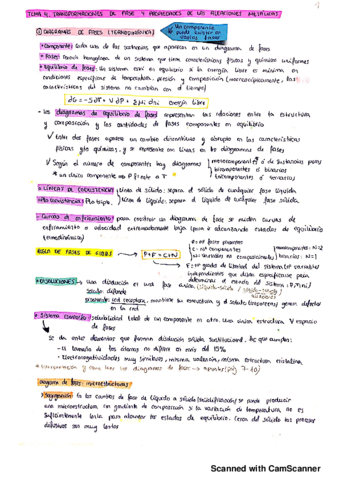 TEMA 4. TRANSFORMACIONES DE FASE Y PROPIEDADES DE LAS ALEACIONES METÁLICAS
Un componente puede existir en varias fases
① DIAGRAMAS DE FASES (TERMODINÁMICA)
* Componente: cada una de las sustancias que aparecen en un diagrama de fases
* Fases: porción homogénea de un sistema que tiene características físicas y químicas uniformes
* Equilibrio de fases: un sistema está en equilibrio si la energía libre es mínima en
condiciones específicas de temperatura, presión y composición (macroscópicamente, las
características del sistema no cambian con el tiempo)
dG = -SdT + VdP + Σμi dni Energía libre
- Los diagramas de equilibrio de fases representan las relaciones entre la estructura,
y composición y las cantidades de fases componentes en equilibrio
✓ Entre dos fases aparece un cambio discontinuo y abrupto en las características
físicas y/o químicas, y se representa con líneas en los diagramas de fases
✓ Según el número de componentes hay diagramas
monocomponentes ó de sustancias puras
bicomponentes ó binarios
ó ternarios
LÍNEAS DE COEXISTENCIA
Línea de sólido: separa el sólido de cualquier fase líquida
Línea de líquido: separa el líquido de cualquier fase sólida.
Pto. triple.
- Curvas de enfriamiento: para construir un diagrama de fase se pueden
enfriamiento a velocidad extremadamente baja para ir alcanzando estados de equilibrio
(termodinámica)
REGLA DE FASES DE GIBBS
P+F = C+N
P = nº fases presentes
C = nº componentes
N = variables no composicionales
binarios: N=1
F = grados de libertad del sistema (nº variables
independientes que deben especificarse para
determinar el estado del sistema: P, T, ni)
DISOLUCIONES
una disolución es una fase
soluto, difunde
mantiene su estructura y el soluto
en la red
* Sistema isomorfo: solubilidad total de un componente en otro. Una única estructura y espacio
de fases
Se da entre elementos que forman disolución sólida sustitucional. Se que cumplen:
- El tamaño de los átomos no difiere en más del 15%
- Electronegatividades muy similares, misma valencia, misma estructura cristalina
Diagrama de fases: microestructuras
* Segregación: En los cambios de fase de líquido a sólido (solidificación) se puede producir
una microestructura con gradiente de composición si la variación de temperatura no es
suficientemente lenta para alcanzar los estados de equilibrio. Cerca del sólido los procesos
difusivos son muy lentos
Scanned with CamScanner